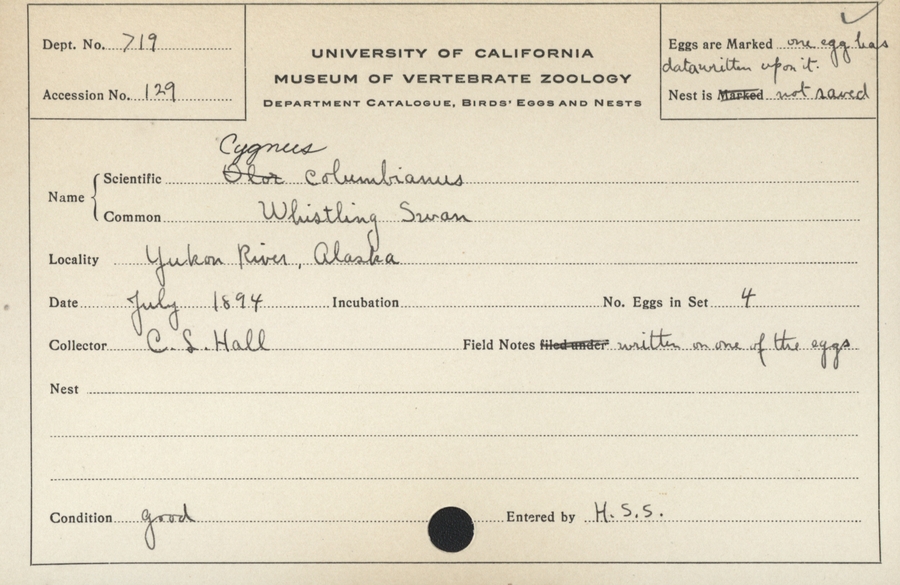 Dept. No. 719
Accession No. 129
UNIVERSITY OF CALIFORNIA
MUSEUM OF VERTEBRATE ZOOLOGY
DEPARTMENT CATALOGUE, BIRDS' EGGS AND NESTS
Eggs are Marked one egg has
data written upon it.
Nest is Marked not saved
Cygnus
Name { Scientific Olor columbianus
Common Whistling Swan
Locality Yukon River, Alaska
Date July 1894 Incubation No. Eggs in Set 4
Collector C. L. Hall Field Notes filed under written on one of the eggs
Nest
Condition good Entered by H.S.S.